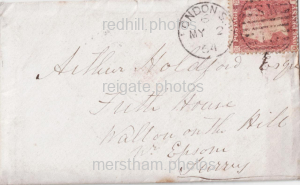 redhill.photos
LONDON
MY
64
Arthur Holdford Esqre
reigate photos
Frith House
Walton on the Hill
Nr Epsom
Surrey
merstham photos